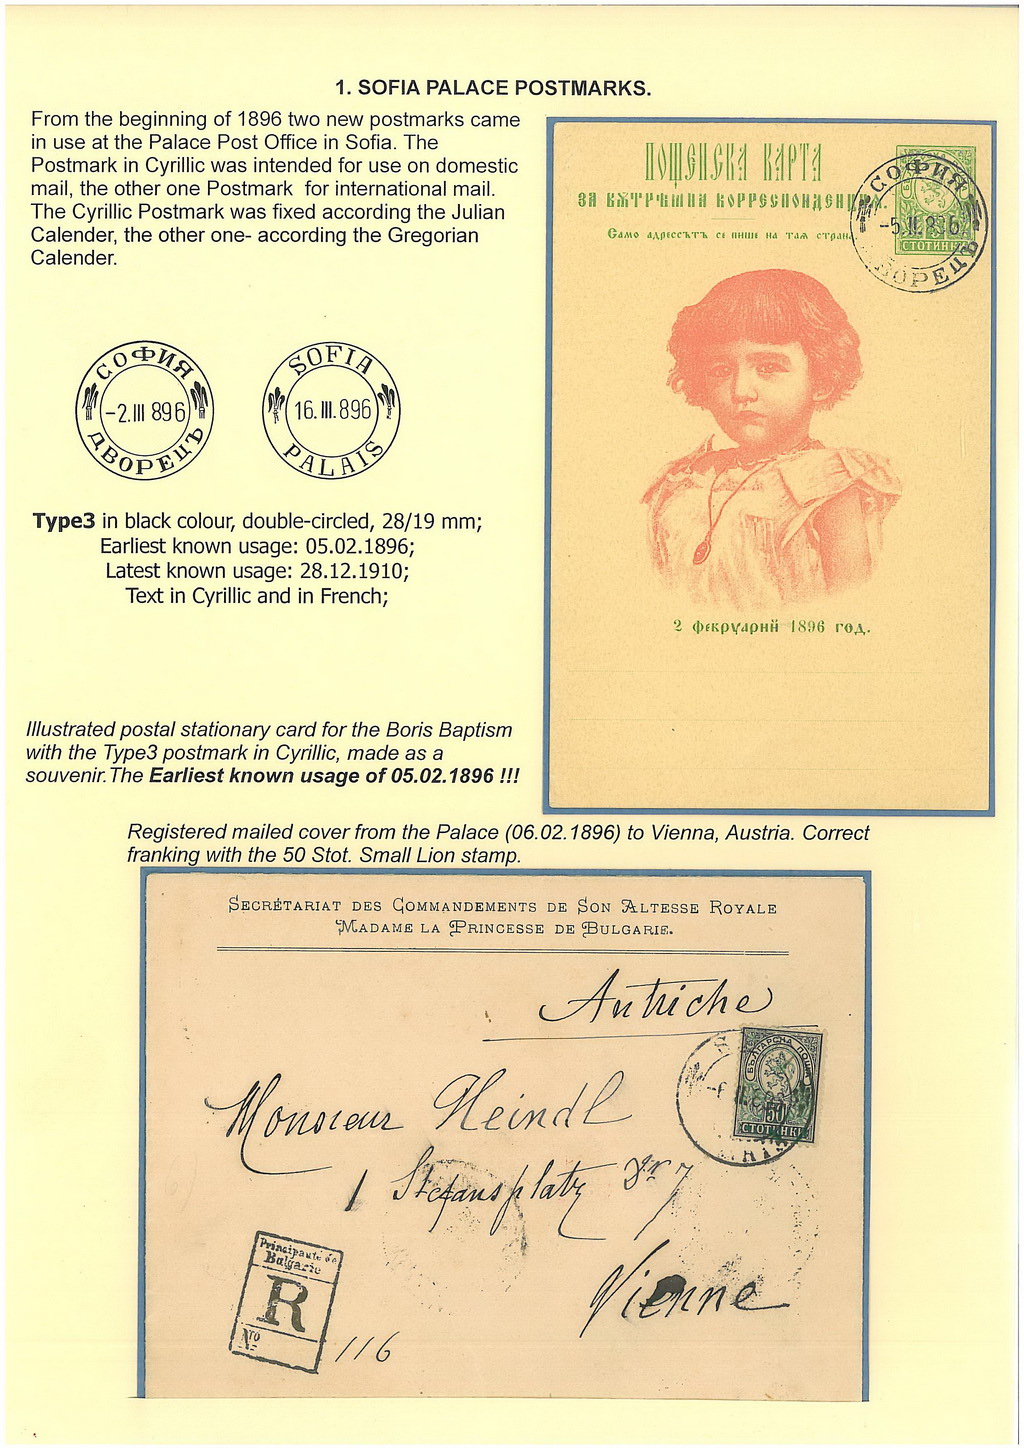 1. SOFIA PALACE POSTMARKS.
From the beginning of 1896 two new postmarks came
in use at the Palace Post Office in Sofia. The
Postmark in Cyrillic was intended for use on domestic
mail, the other one Postmark for international mail.
The Cyrillic Postmark was fixed according the Julian
Calender, the other one- according the Gregorian
Calender.
СОФИЯ
-2.III 896
ДВОРЕЦЪ
SOFIA
16.III.896
PALAIS
Type3 in black colour, double-circled, 28/19 mm;
Earliest known usage: 05.02.1896;
Latest known usage: 28.12.1910;
Text in Cyrillic and in French;
Illustrated postal stationary card for the Boris Baptism
with the Type3 postmark in Cyrillic, made as a
souvenir.The Earliest known usage of 05.02.1896 !!!
ПОЩЕНСКА КАРТА
ЗА ВѪТРѢШНИ КОРРЕСПОНДЕНЦИИ.
Само адрессътъ се пише на тая страна.
СОФИЯ
-5.II.896
ДВОРЕЦЪ
СТОТИНКИ
2 февруарий 1896 год.
Registered mailed cover from the Palace (06.02.1896) to Vienna, Austria. Correct
franking with the 50 Stot. Small Lion stamp.
SECRÉTARIAT DES COMMANDEMENTS DE SON ALTESSE ROYALE
MADAME LA PRINCESSE DE BULGARIE.
Autriche
БЪЛГАРСКА ПОЩА
50
СТОТИНКИ
Monsieur Heindl
1 Stefansplatz Nr 7
Vienne
Principauté de
Bulgarie
R
Nto
116